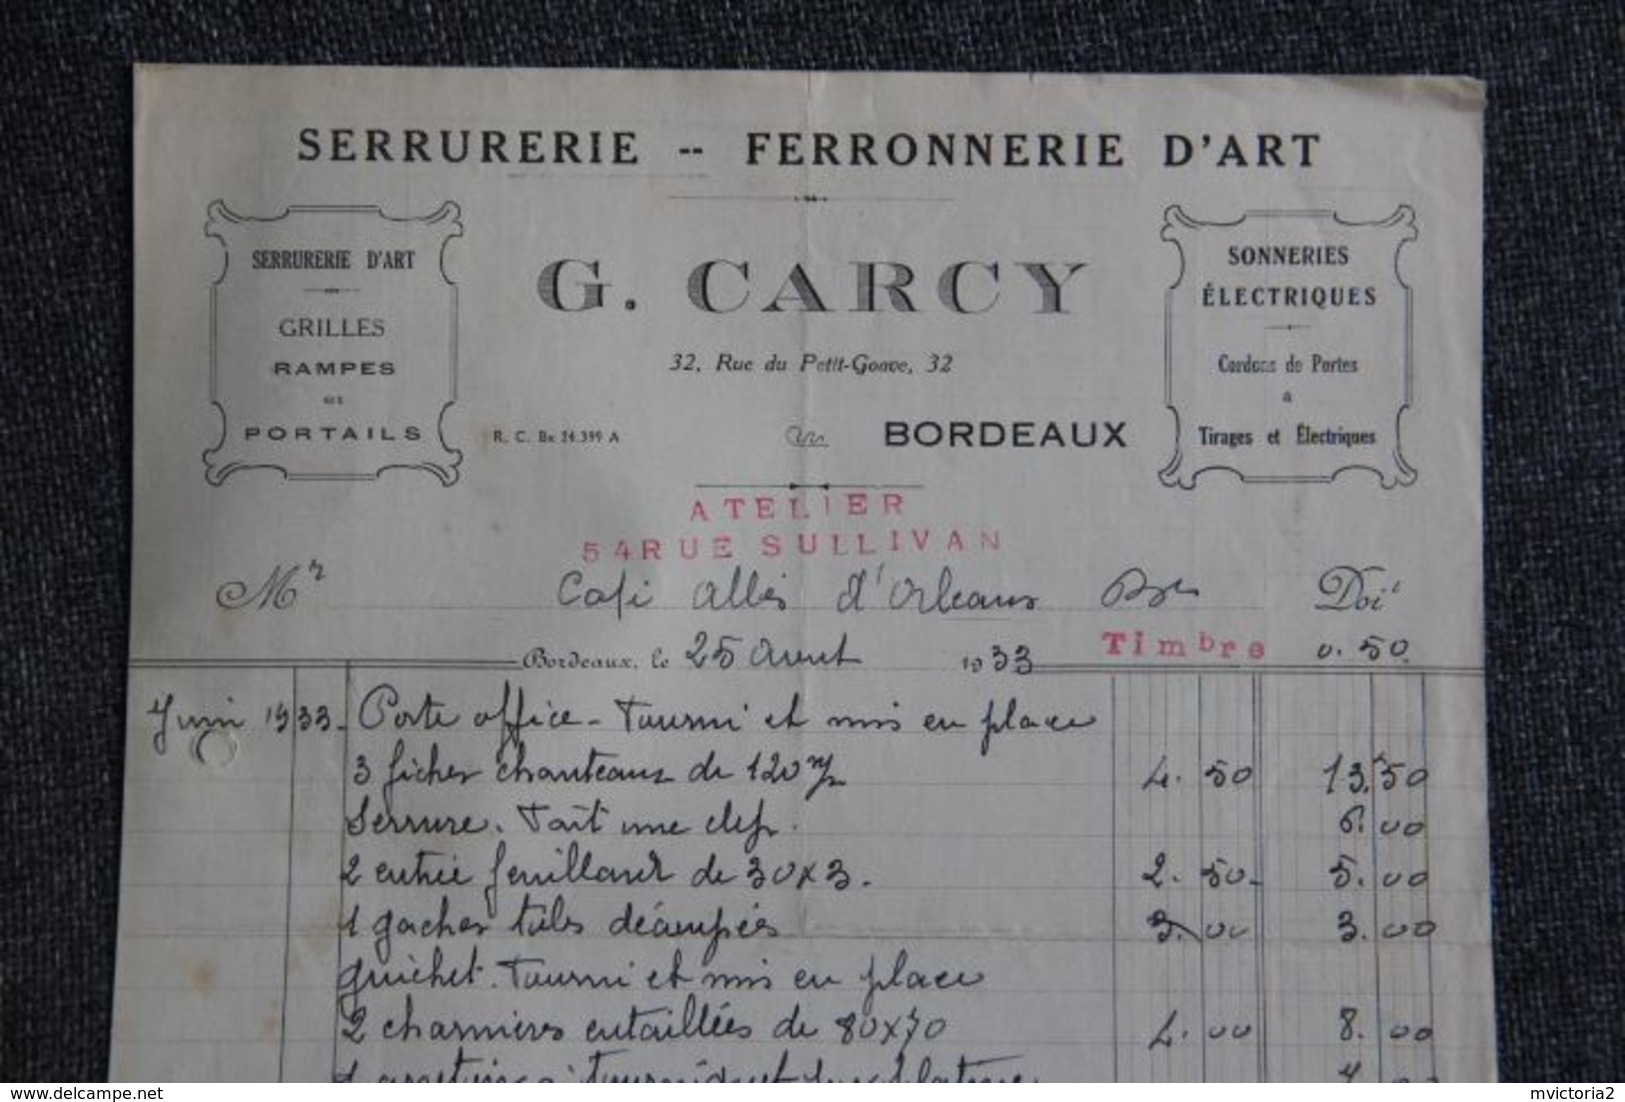 SERRURERIE -- FERRONNERIE D'ART
SERRURERIE D'ART
GRILLES
RAMPES
et
PORTAILS
G. CARCY
32, Rue du Petit-Goave, 32
R. C. Bx 24.399 A
BORDEAUX
SONNERIES
ÉLECTRIQUES
Cordons de Portes
à
Tirages et Électriques
ATELIER
54 RUE SULLIVAN
Mr Café allées d'Orléans Bx Doit
Bordeaux, le 25 Aout 1933
Timbre 0.50
Juin 1933. Porte office - Fourni et mis en place
3 fiches chanteaux de 120 m/m 4.50 13.50
Serrure. Fait une clef. 6.00
2 entrée feuillard de 30x3. 2.50 5.00
1 gaches tôles découpées 3.00 3.00
guichet. Fourni et mis en place
2 charnières entaillées de 80x70 4.00 8.00
www.delcampe.net
mvictoria2